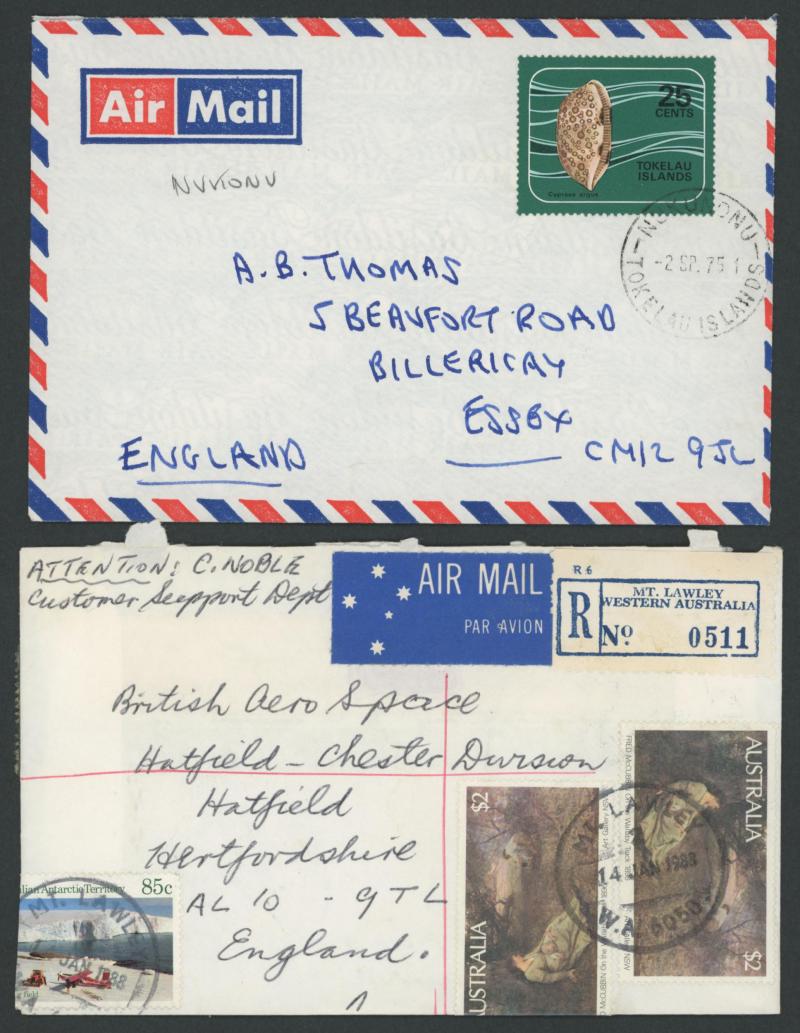 Air Mail
25
CENTS
TOKELAU
ISLANDS
Cypraea argus
NUKUNONU
-2 SP. 75 1
TOKELAU ISLANDS
NUKONU
A.B. THOMAS
5 BEAUFORT ROAD
BILLERICAY
ESSEX
ENGLAND
CM12 9JL
ATTENTION: C. NOBLE
Customer Seupport Dept
AIR MAIL
PAR AVION
R6
R
MT. LAWLEY
WESTERN AUSTRALIA
No 0511
British Aero Space
Hatfield - Chester Division
Hatfield
Hertfordshire
AL 10 - 9TL
England.
lian Antarctic Territory 85c
MT. LAWLEY
JAN 1988
field
$2
AUSTRALIA
FRED McCUBBIN On the Wallaby Track
Art Gallery NSW
MT. LAWLEY
14 JAN 1988
W.A. 6050
$2
AUSTRALIA
McCUBBIN On the
NSW